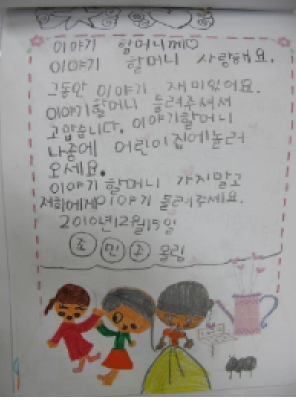 이야기 할머니께♡
이야기 할머니 사랑해요.
그동안 이야기 재미있어요.
이야기할머니 들려주셔서
고맙습니다. 이야기할머니
나중에 어린이집에놀러
오세요.
이야기 할머니 가지말고
저희에게이야기 들려주세요.
2010년12월15일
조민조 올림